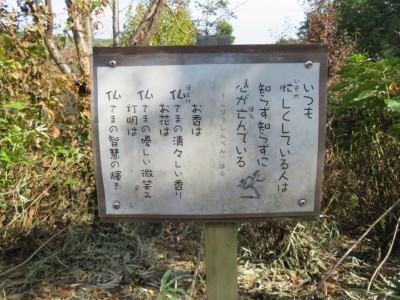 いつも
忙しくしている人は
知らず知らずに
心が亡んでいる
お香は
仏さまの清々しい香り
お花は
仏さまの優しい微笑み
灯明は
仏さまの智慧の輝き